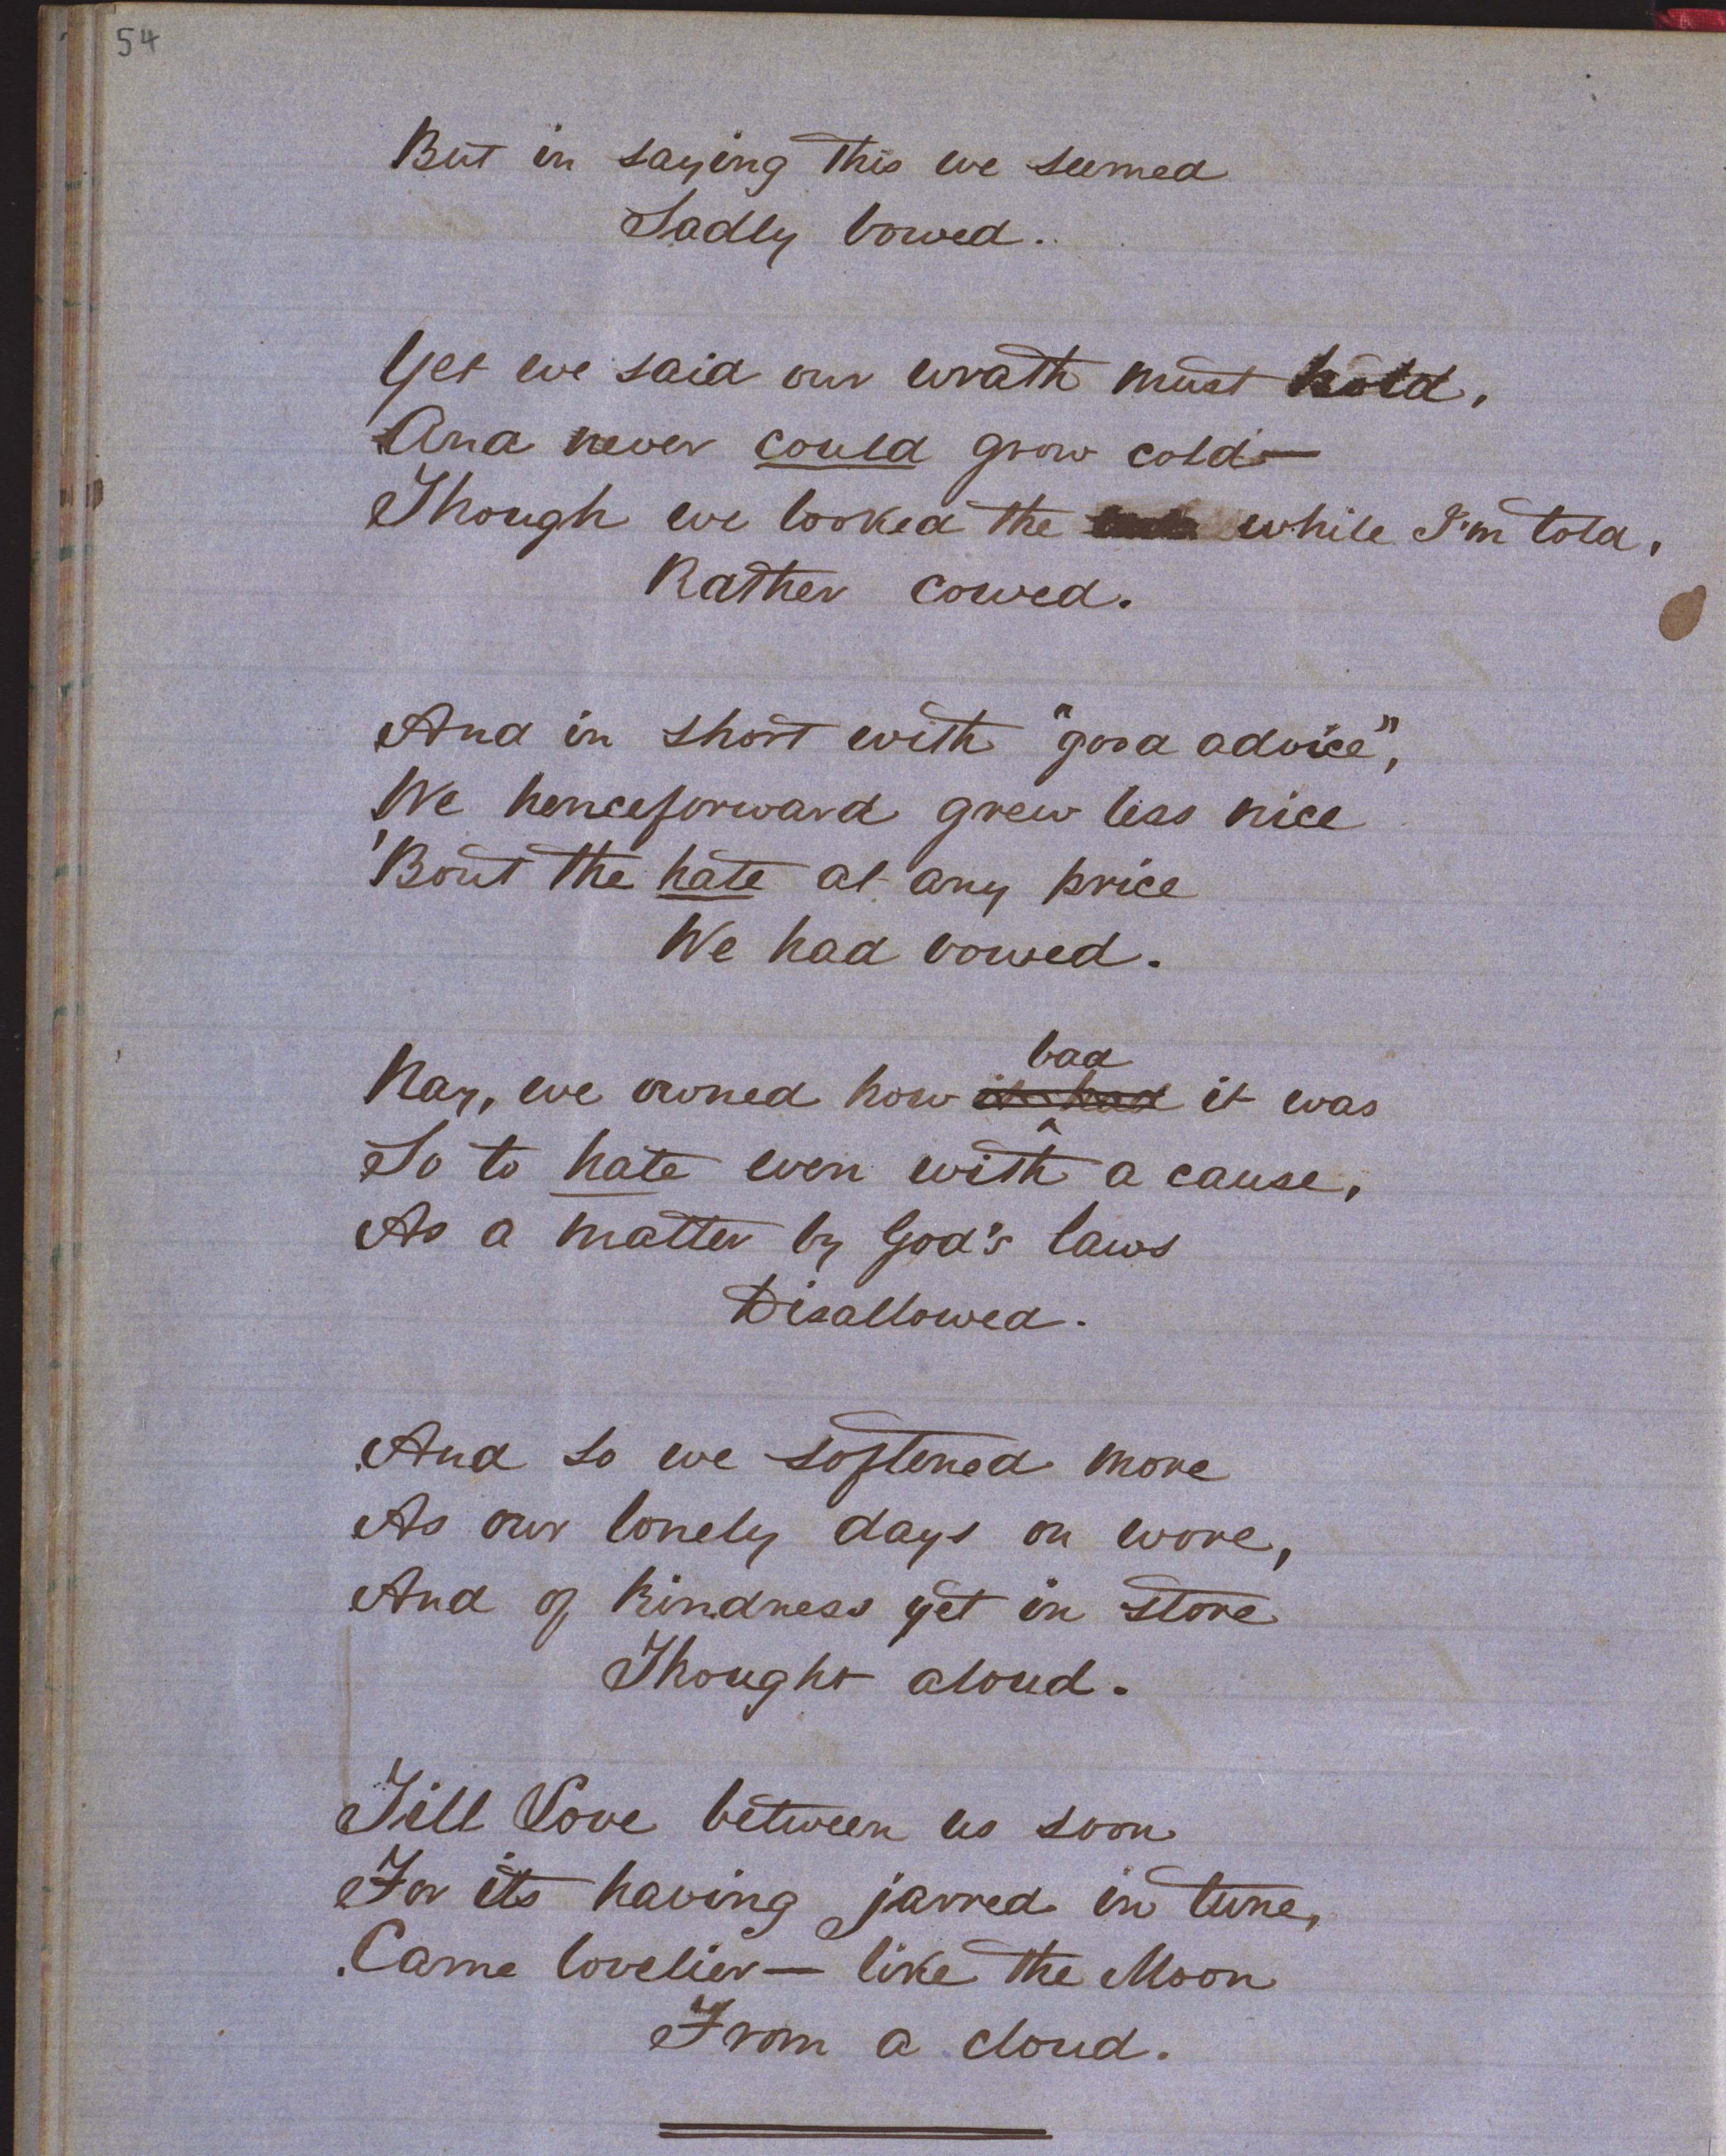 54
But in saying this we seemed
Sadly bowed.
Yet we said our wrath must hold,
And never could grow cold—
Though we looked the while I'm told,
Rather cowed.
And in short with "good advice",
We henceforward grew less nice
'Bout the hate at any price
We had vowed.
bad
Nay, we owned how it had it was
So to hate even with a cause,
As a matter by God's laws
Disallowed.
And so we softened more
As our lonely days on wore,
And of kindness yet in store
Thought aloud.
Till Love between us soon
For its having jarred in tune,
Came lovelier— like the Moon
From a cloud.